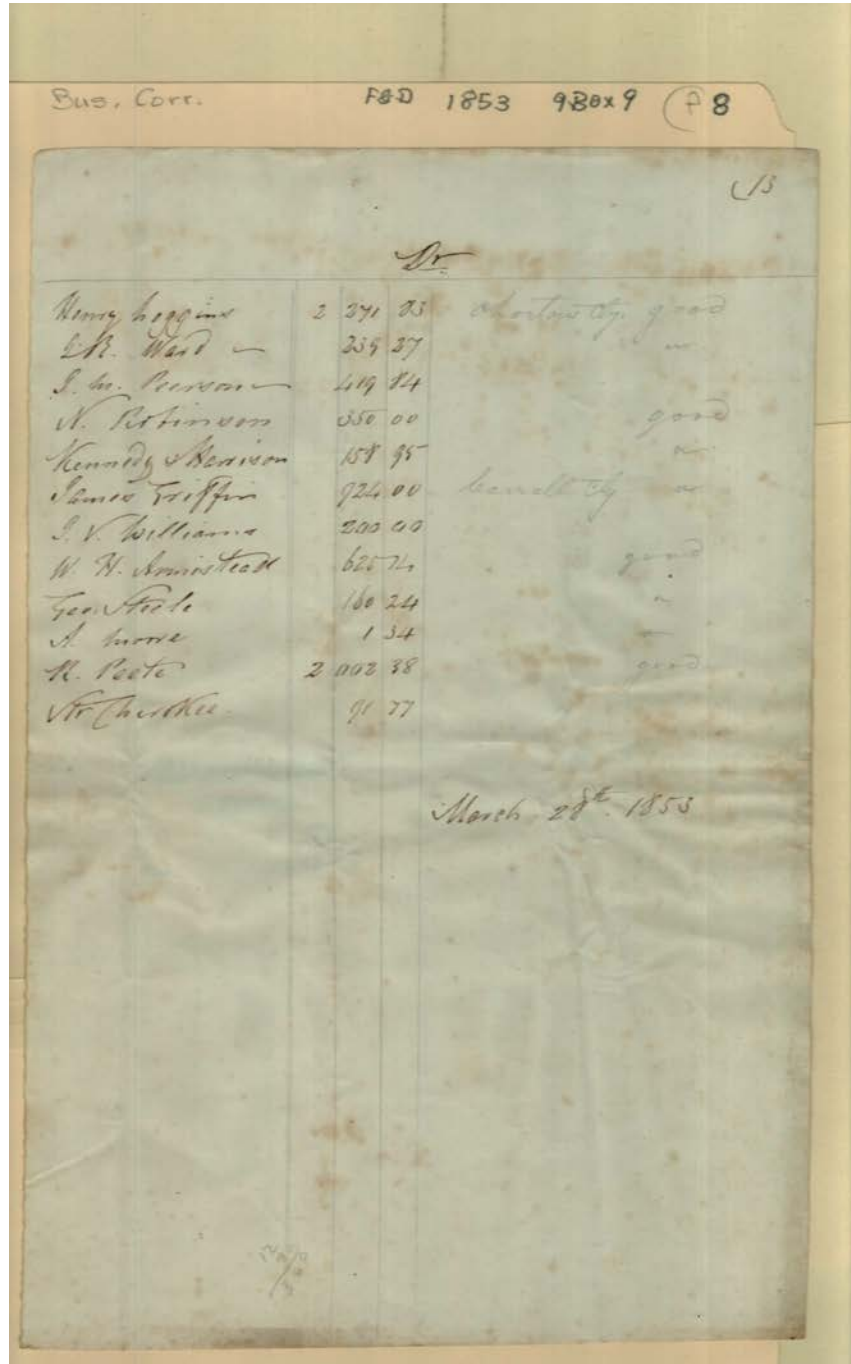 Bus. Corr. F&D 1853 9Box9 (P 8
(13
Dr
Henry Loggins 2 271 83 Choctaw Cty. good
Ward — 239 27 "
J. M. Peerson — 419 84
N. Robinson 350 00 good
Kennedy & Harrison 158 95 "
James Griffin 924 00 Carroll Cty "
J. V. Williams 200 00
W. H. Armistead 625 74 good
Geo. Steele 160 24 "
A. Moore 1 34 "
R. Peete 2 002 38 good
Str Cherokee 91 77
March 28th. 1853